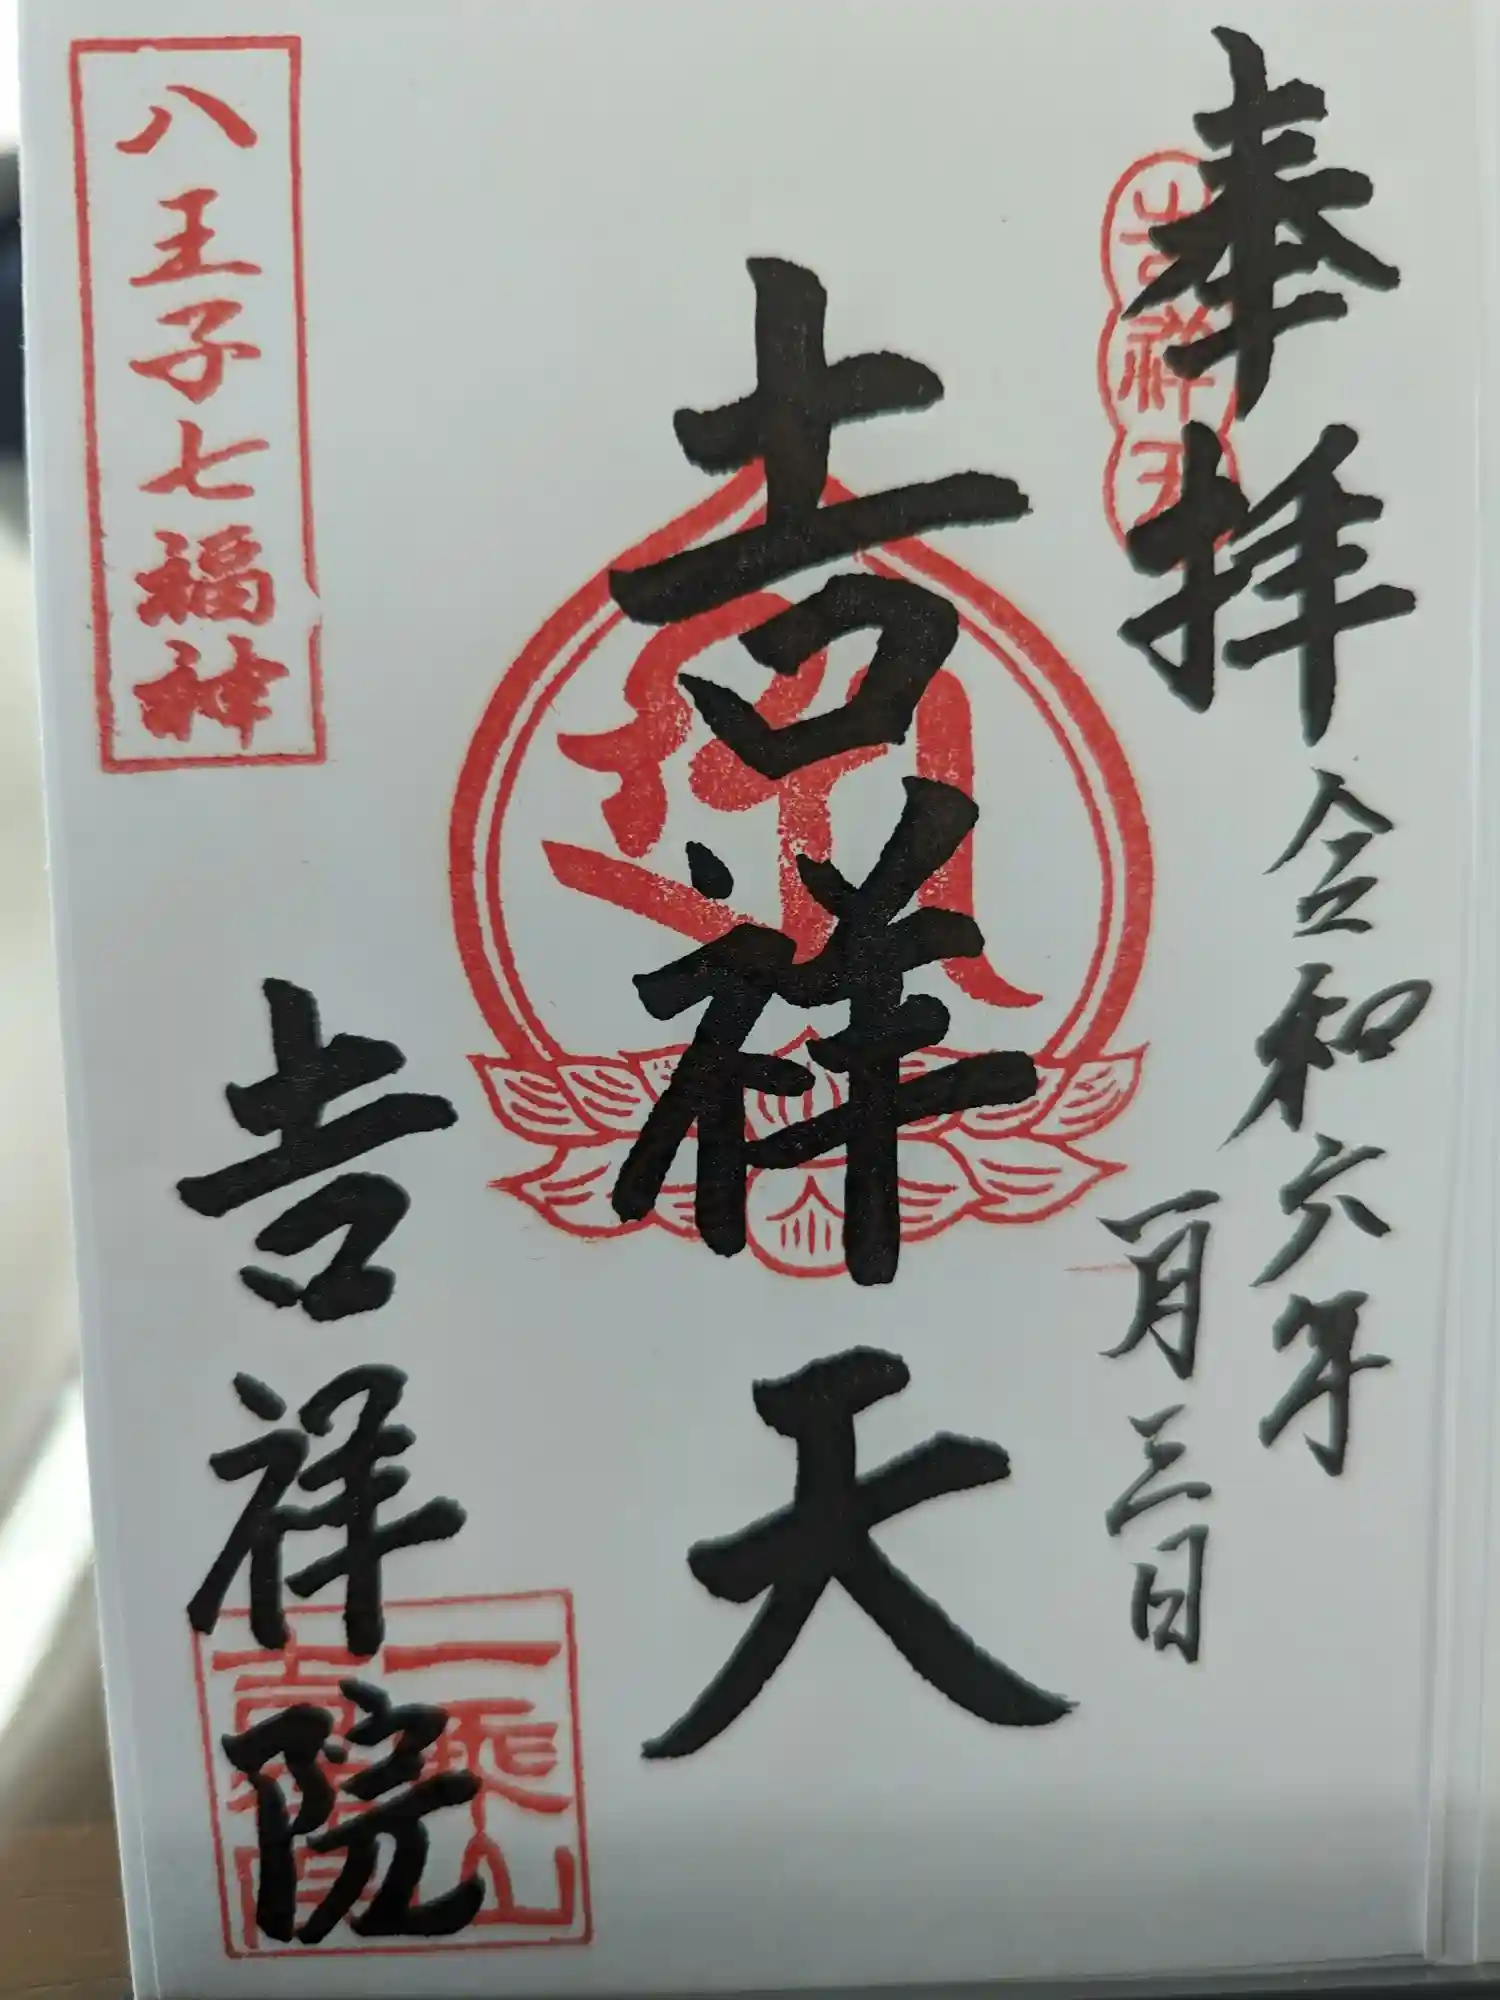 奉拝
吉祥天
令和六年
一月三日
吉祥天
八王子七福神
吉祥院
一乗山